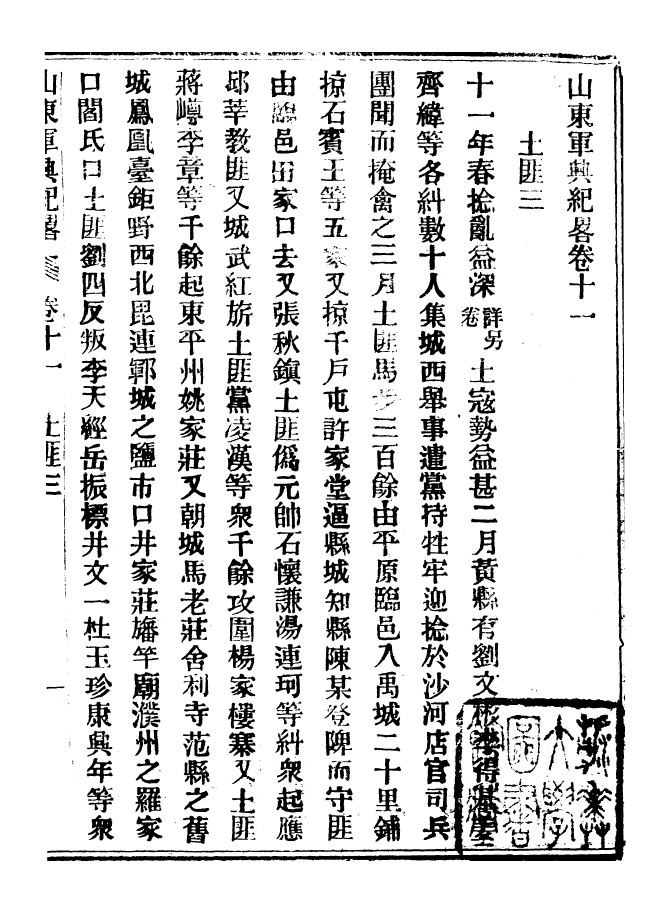 山東軍興紀畧卷十一
土匪三
十一年春捻亂益深詳另卷土寇勢益甚二月黃縣有劉文彬李得基姜
齊緯等各糾數十人集城西舉事遣黨持牲牢迎捻於沙河店官司兵
團聞而掩禽之三月土匪馬步三百餘由平原臨邑入禹城二十里鋪
掠石賓王等五家又掠千戶屯許家堂逼縣城知縣陳某登陴而守匪
由臨邑田家口去又張秋鎮土匪僞元帥石懷謙湯連珂等糾衆起應
邱莘教匪又城武紅旂土匪黨凌漢等衆千餘攻圍楊家樓寨又土匪
蔣嶟李章等千餘起東平州姚家莊又朝城馬老莊舍利寺范縣之舊
城鳳凰臺鉅野西北毘連鄆城之鹽市口井家莊旛竿廟濮州之羅家
口閻氏口土匪劉四反叛李天經岳振標井文一杜玉珍康興年等衆
山東軍興紀畧 卷十一 土匪三 一